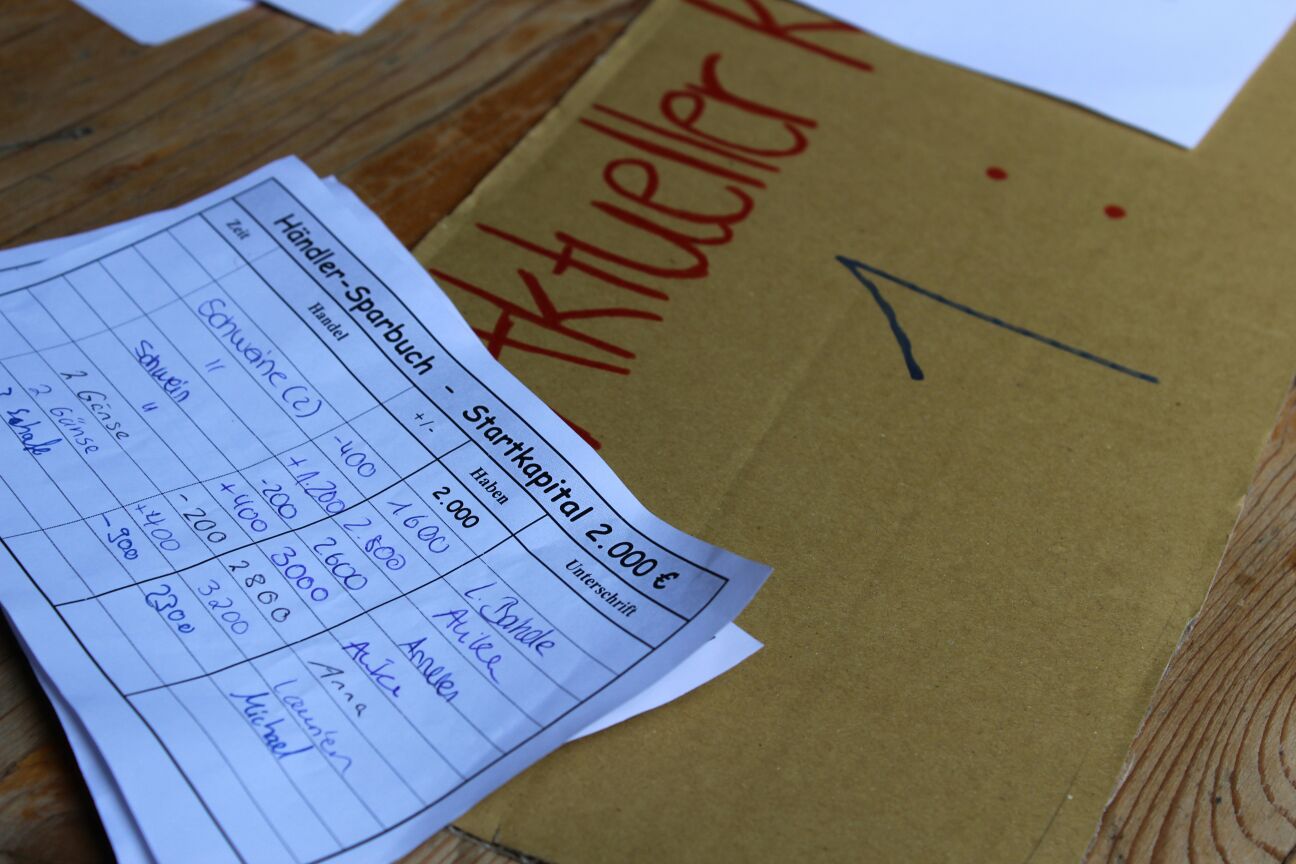 Händler-Sparbuch - Startkapital 2.000 €
Zeit Handel +/- Haben Unterschrift
2.000
Schweine (2) -400 1600 L. Bahde
" +1.200 2.800 Auike
Schwein -200 2600 Anneken
" +400 3000 Auike
2 Gänse -200 2800 Anna
2 Gänse +400 3200 Laurien
Schafe -900 2300 Michael
Aktueller
1.